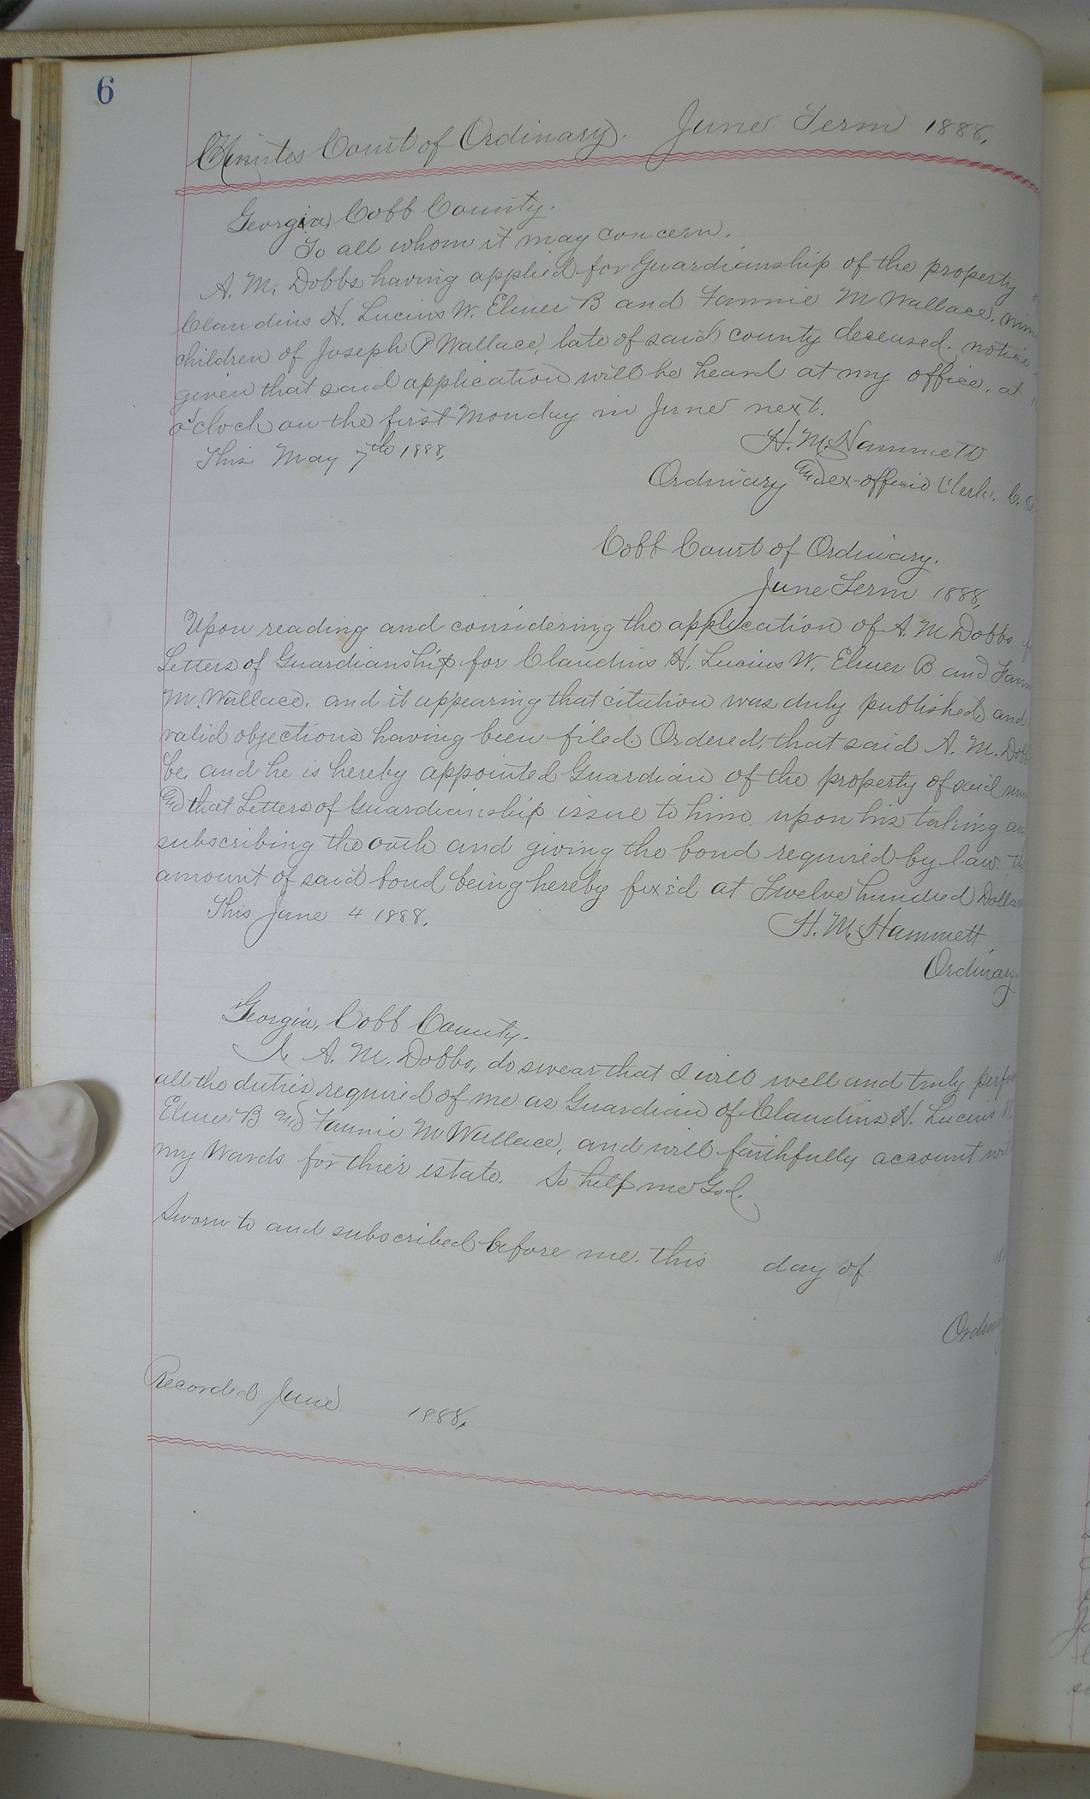 6
Minutes Court of Ordinary. June Term 1888.
Georgia, Cobb County.
To all whom it may concern.
A. M. Dobbs having applied for Guardianship of the property
Claudius H. Lucius W. Elmer B and Fannie M Wallace, min
children of Joseph P Wallace, late of said county deceased. notice
given that said application will be heard at my office, at
o'clock on the first Monday in June next.
This May 7th 1888, H. M. Hammett
Ordinary and ex-officio Clerk. C.
Cobb Court of Ordinary.
June Term 1888,
Upon reading and considering the application of A. M Dobbs
Letters of Guardianship for Claudius H. Lucius W. Elmer B and Fann
M. Wallace, and it appearing that citation was duly published and
valid objections having been filed. Ordered, that said A. M. Dob
be, and he is hereby appointed Guardian of the property of said min
and that Letters of Guardianship issue to him, upon his taking an
subscribing the oath and giving the bond required by law. th
amount of said bond being hereby fixed at Twelve hundred Dollar
This June 4 1888. H. M. Hammett
Ordinary
Georgia, Cobb County.
I, A. M. Dobbs, do swear that I will well and truly perfo
all the duties required of me as Guardian of Claudius H. Lucius
Elmer B and Fannie M Wallace, and will faithfully account wit
my Wards for thier estate. So help me God.
Sworn to and subscribed before me this day of
Ordin
Recorded June 1888.